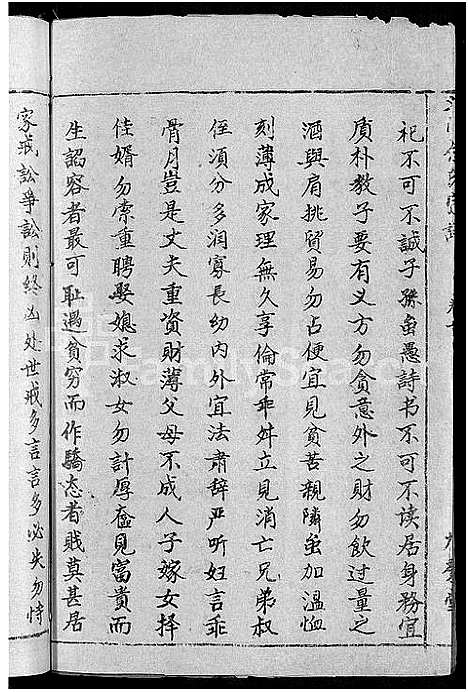 祀不可不誠子孫虽愚詩书不可不读居身務宜
质朴教子要有义方勿貪意外之财勿飲过量之
酒與肩挑貿易勿占便宜見貧苦親隣虽加溫恤
刻薄成家理無久享倫常乖舛立見消亡兄弟叔
侄須分多润寡長幼内外宜法肃辞严听妇言乖
骨月豈是丈夫重資財薄父母不成人子嫁女择
佳婿勿索重聘娶媳求淑女勿計厚奩見富貴而
生諂容者最可耻遇貧穷而作驕态者贱莫甚居
家戒訟爭訟則終凶处世戒多言言多必失勿恃